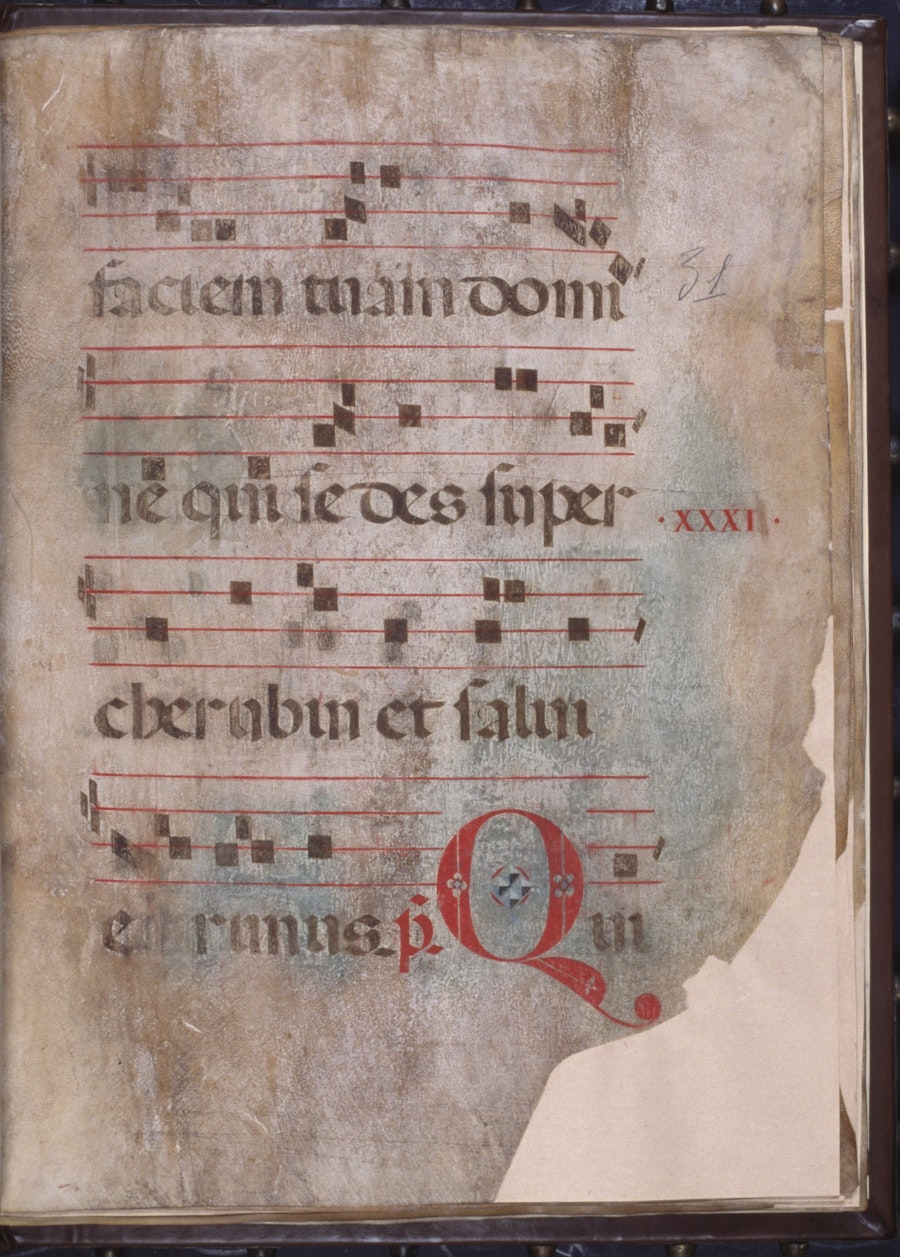 faciem tuam domi
31
ne qui sedes super
· XXXI ·
cherubin et salui
erimus. p̄. Qui